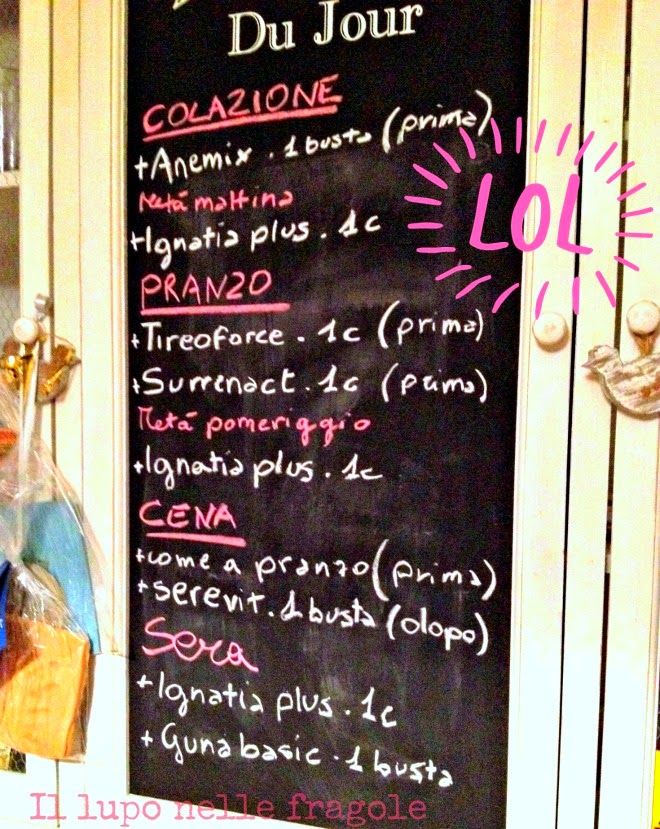 Du Jour
COLAZIONE
+Anemix . 1 busta (prima)
Metá mattina
+Ignatia plus . 1c
LOL
PRANZO
+Tireoforce . 1c (prima)
+Surrenact . 1c (prima)
Metá pomeriggio
+Ignatia plus . 1c
CENA
+come a pranzo (prima)
+serevit . 1 busta (dopo)
Sera
+Ignatia plus . 1c
+Guna basic . 1 busta
Il lupo nelle fragole